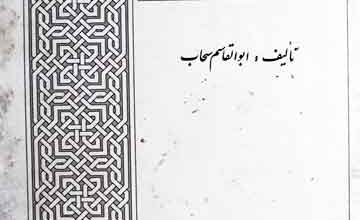 تألیف : ابوالقاسم سحاب